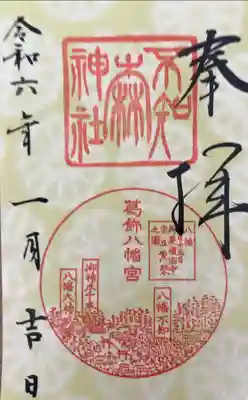 奉拝
不知
森
神社
葛飾八幡宮
八幡不知
八幡大神
令和六年一月吉日